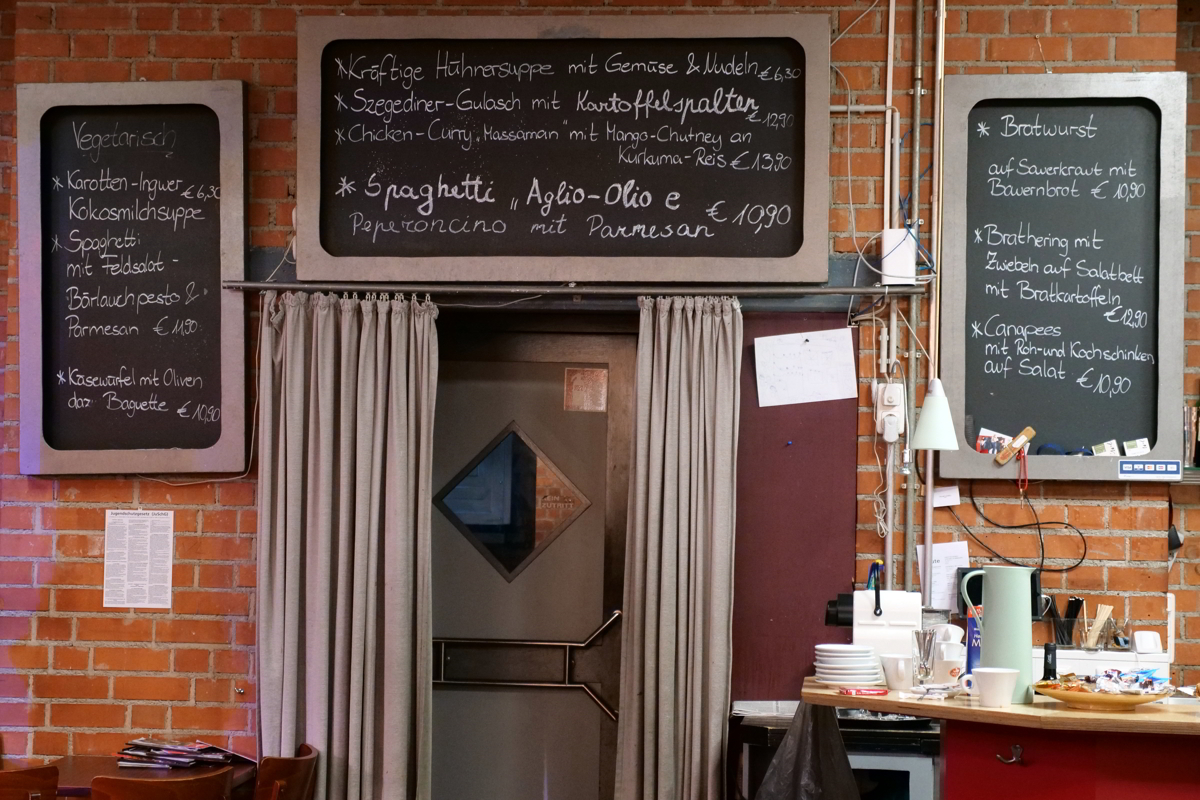 Vegetarisch
* Karotten-Ingwer € 6,30
Kokosmilchsuppe
* Spaghetti
mit Feldsalat-
Bärlauchpesto &
Parmesan € 11,90
* Käsewürfel mit Oliven
daz Baguette € 10,90
* Kräftige Hühnersuppe mit Gemüse & Nudeln € 6,30
* Szegediner-Gulasch mit Kartoffelspalten
€ 12,90
* Chicken-Curry „Massaman" mit Mango-Chutney an
Kurkuma-Reis € 13,90
* Spaghetti „Aglio-Olio e
Peperoncino mit Parmesan" € 10,90
* Bratwurst
auf Sauerkraut mit
Bauernbrot € 10,90
* Brathering mit
Zwiebeln auf Salatbett
mit Bratkartoffeln
€ 12,90
* Canapees
mit Roh-und Kochschinken
auf Salat € 10,90
Jugendschutzgesetz (JuSchG)
ZUTRITT